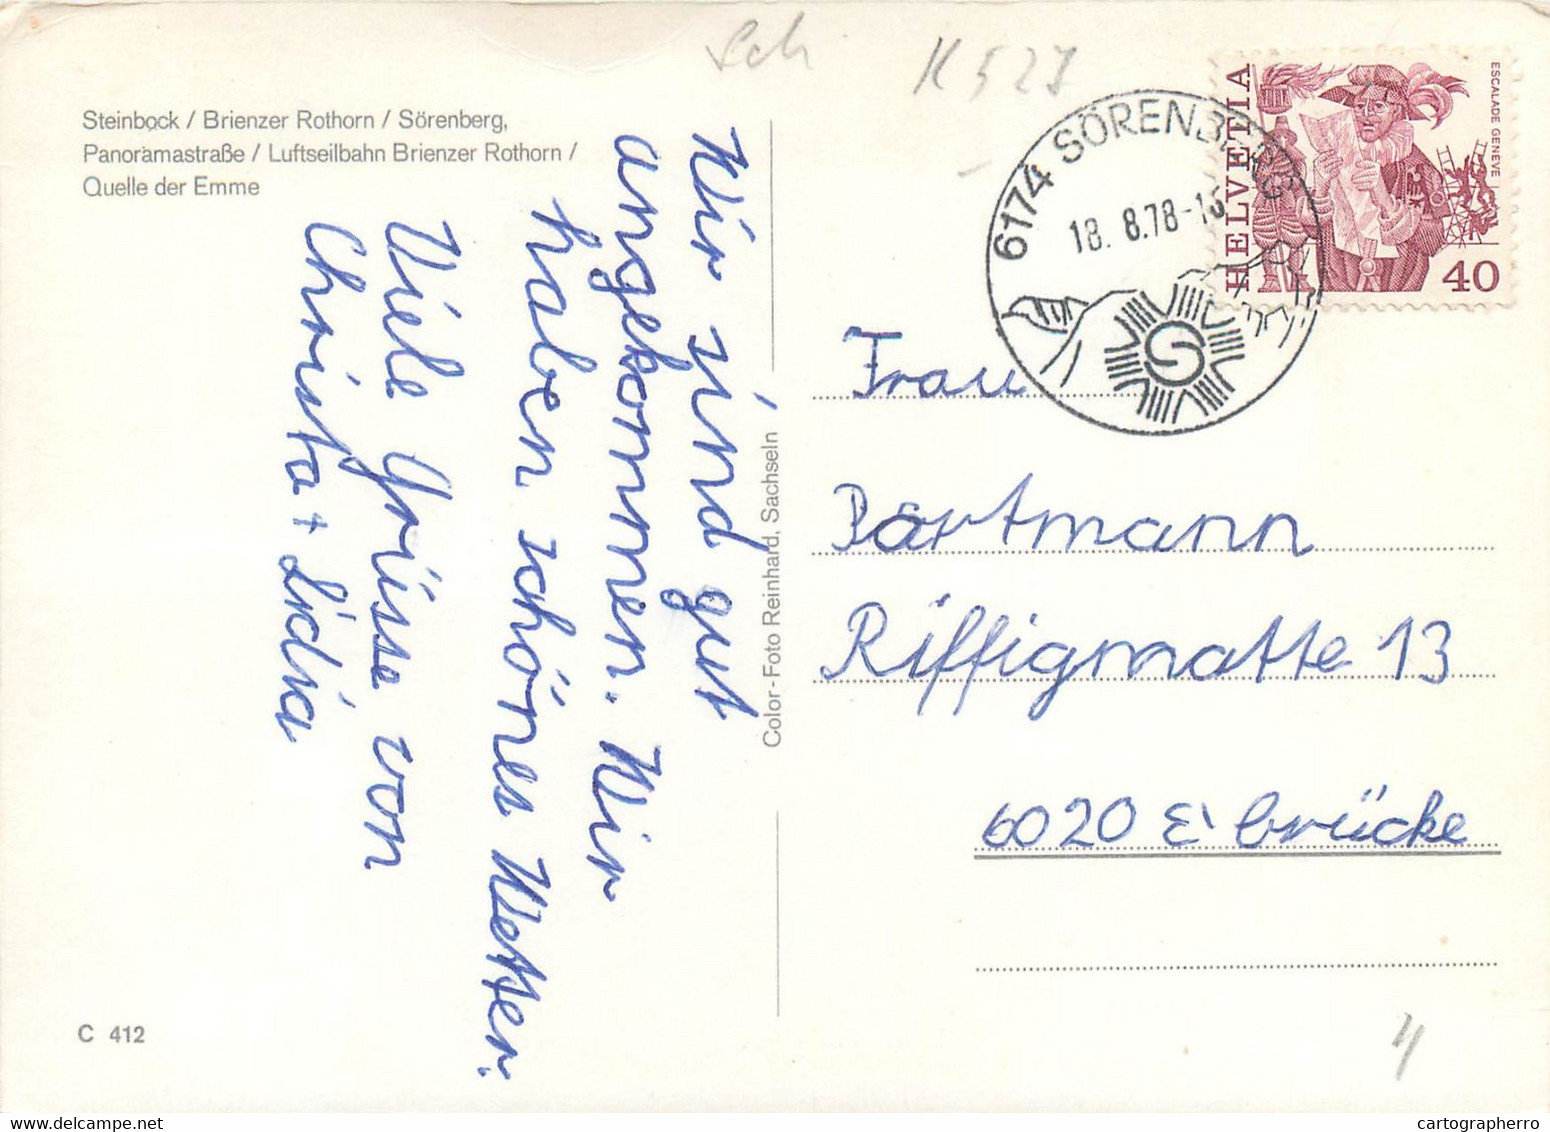 Sch
K 527
Steinbock / Brienzer Rothorn / Sörenberg,
Panoramastraße / Luftseilbahn Brienzer Rothorn /
Quelle der Emme
Wir sind gut
angekommen. Wir
haben schönes Wetter.
Viele Grüsse von
Christa + Lidia
Color-Foto Reinhard, Sachseln
6174 SÖRENBERG
18. 8.78-
HELVETIA
ESCALADE GENEVE
40
Frau
Bartmann
Riffigmatte 13
6020 E'brücke
C 412
4
www.delcampe.net
cartographerro